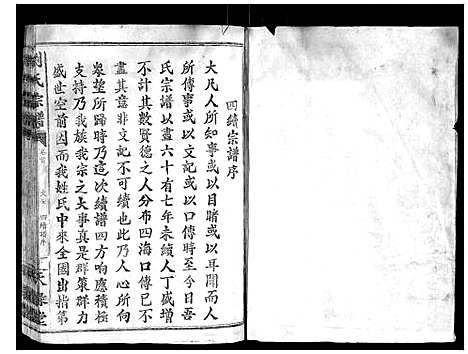 四續宗譜序
大凡人所知事或以目睹或以口
傳傳事或以文記或以口傳至今日吾
氏宗譜以盡六十有七年未續人丁成增
不計其數賢德之人分布四海口傳已不
盡其意非文記不可續也此乃人心所向
衆望所歸時乃這次續譜四方响應積極
支持乃我族我宗之大事真是群策群力
盛世空前因而我姓氏中來全國出指第
劉氏宗譜
四續譜序